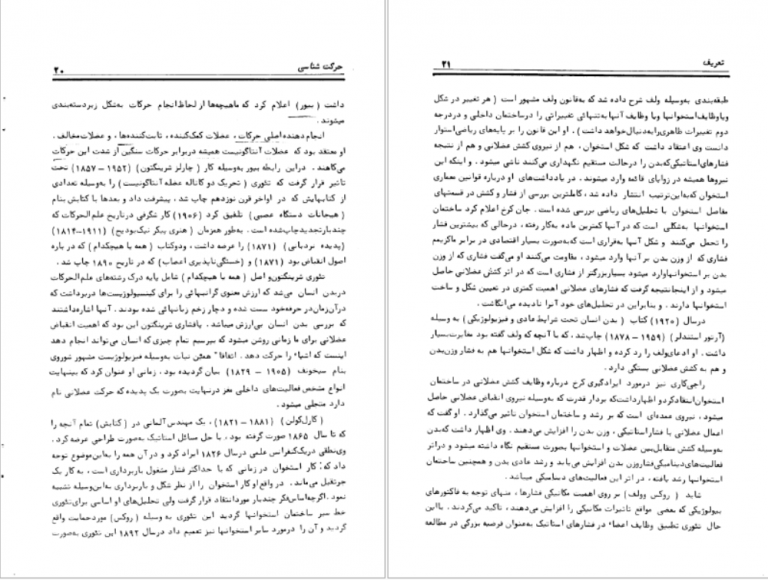 ۲۰ حرکت شناسی
داشت ( بیور) اعلام کرد که ماهیچه‌ها از لحاظ انجام حرکات به‌شکل زیر دسته‌بندی
میشوند .
انجام دهنده اصلی حرکات، عضلات کمک‌کننده، ثابت‌کننده‌ها ، و عضلات مخالف.
او معتقد بود که عضلات آنتاگونیست همیشه در برابر حرکات سنگین از شدت این حرکات
می‌کاهند . در این رابطه بیور به‌وسیله کار ( چارلز شرینگتون) (۱۹۵۲ – ۱۸۵۷) تحت
تاثیر قرار گرفت که تئوری ( تحریک دو کاناله عضله آنتاگونیست) را به‌وسیله تعدادی
از کتابهایش که در اواخر قرن نوزدهم چاپ شد ، پیشرفت داد و بعدها با کتابش بنام
( هیجانات دستگاه عصبی) تلفیق کرد (۱۹۰۶) کار شگرفی در تاریخ علم‌الحرکات که
چندبار تجدید چاپ شده است . به‌طور همزمان ( هنری پیکر نیک‌بودیچ) (۱۹۱۱–۱۸۱۴)
(پدیده نردبانی) (۱۸۷۱) را عرضه داشت ، و دو کتاب ( همه یا هیچکدام) که در باره
اصول انقباض بود (۱۸۷۱) و (خستگی‌ناپذیری اعصاب) که در تاریخ ۱۸۹۰ چاپ شد .
تئوری شرینگتون و اصل ( همه یا هیچکدام) شامل پایه درک رشته‌های علم‌الحرکات
در بدن انسان می‌شد که ارزش معنوی گرانبهائی را برای کینسیولوژیست‌ها در برداشت که
در آن زمان در حرفه خود سست شده و دچار زخم زبانهائی شده بودند . آنها اشاره داشتند
که بررسی بدن انسان بی‌ارزش میباشد . پافشاری شرینگتون این بود که اهمیت انقباض
عضلانی برای ما زمانی روشن میشود که بپرسیم تمام چیزی که انسان می‌تواند انجام دهد
اینست که اشیاء را حرکت دهد . اتفاقا" همین نیات به‌وسیله فیزیولوژیست مشهور شوروی
بنام سیچونف (۱۹۰۵ – ۱۸۲۹) بیان گردیده بود. زمانی او عنوان کرد که بی‌نهایت
انواع مشخص فعالیت‌های داخلی مغز در نهایت به‌صورت یک پدیده که حرکت عضلانی نام
دارد متجلی میشود .
( کارل‌کولمن) (۱۸۸۱ – ۱۸۲۱) ، یک مهندس آلمانی در ( کتابش) تمام آنچه را
که تا سال ۱۸۶۵ صورت گرفته بود . با حل مسائل استاتیک به‌صورت طراحی عرضه کرد .
وی نطقی در یک کنفرانس علمی در سال ۱۸۲۶ ایراد کرد و در آن همه را به‌این موضوع توجه
داد که : کار استخوان در زمانی که با حداکثر فشار مشغول باربرداری است ، به کار یک
جرثقیل می‌ماند . در واقع او کار استخوان را از نظر شکل و باربرداری به این وسیله تشبیه
نمود. اگرچه اساس فکر چندبار مورد انتقاد قرار گرفت ولی تحلیل‌های او اساسی برای تئوری
خط سیر ساختمان استخوانها گردید این تئوری به وسیله ( روکس) مورد حمایت واقع
گردید و آن را در مورد سایر استخوانها نیز تعمیم داد در سال ۱۸۹۲ این تئوری به‌صورت
تعریف ۲۱
طبقه‌بندی به‌وسیله ولف شرح داده شد که به‌قانون ولف مشهور است ( هر تغییر در شکل
و یا وظایف استخوانها و یا وظایف آنها به‌تنهائی تغییراتی را در ساختمان داخلی و در درجه
دوم تغییرات ظاهری را به دنبال خواهد داشت) . او این قانون را بر پایه‌های ریاضی استوار
دانست وی اعتقاد داشت که شکل استخوان ، هم از نیروی کشش عضلانی و هم از نتیجه
فشارهای استاتیکی که بدن را در حالت مستقیم نگهداری می‌کنند ناشی میشود . و اینکه این
نیروها همیشه در زوایای قائمه وارد میشوند. در یادداشت‌های او درباره قوانین معماری
استخوان که به‌این ترتیب انتشار داده شد ، کاملترین بررسی از فشار و کشش در قسمتهای
مفاصل استخوان با تحلیل‌های ریاضی بررسی شده است . جان کرخ اعلام کرد ساختمان
استخوانها به‌شکلی است که در آنها کمترین ماده به‌کار رفته ، درحالی که بیشترین فشار
را تحمل می‌کنند و شکل آنها به‌قراری است که به‌صورت بسیار اقتصادی در برابر ماکزیمم
فشاری که از وزن بدن بر آنها وارد میشود ، مقاومت می‌کنند و او می‌گفت فشاری که از وزن
بدن بر استخوانها وارد میشود بسیار بزرگتر از فشاری است که در اثر کشش عضلانی حاصل
میشود و از اینجا نتیجه گرفت که فشارهای عضلانی اهمیت کمتری در تعیین شکل و ساخت
استخوانها دارند . و بنابراین در تحلیل‌های خود آنرا نادیده می‌انگاشت .
در سال (۱۹۲۰) کتاب ( بدن انسان تحت شرایط مادی و فیزیولوژیکی) به وسیله
(آرتور استندلر) (۱۹۵۹ – ۱۸۷۸) چاپ شد، که با آنچه که ولف گفته بود مغایرت بسیار
داشت . او ادعای ولف را رد کرده و اظهار داشت که شکل استخوانها هم به فشار وزن بدن
و هم به کشش عضلانی بستگی دارد .
راجی کاری نیز در مورد ایرادگیری کرخ درباره وظایف کشش عضلانی در ساختمان
استخوان انتقاد کرد و اظهار داشت که بردار قدرت که به‌وسیله نیروی انقباض عضلانی حاصل
میشود ، نیروی عمده‌ای است که بر رشد و ساختمان استخوان تاثیر می‌گذارد . او گفت که
اعمال عضلانی با فشار استاتیکی ، وزن بدن را افزایش می‌دهند. وی اظهار داشت که بدن
به‌وسیله کشش متقابل بین عضلات و استخوانها به‌صورت مستقیم نگاه داشته میشود و در اثر
فعالیت‌های دینامیکی فشار وزن بدن افزایش می‌یابد و رشد عادی بدن و همچنین ساختمان
استخوانها رشد یافته ، در اثر این فعالیت‌های دینامیکی میباشد .
شاید ( روکس و ولف) بر روی اهمیت مکانیکی فشارها ، منهای توجه به فاکتورهای
بیولوژیکی که بعضی مواقع تاثیرات مکانیکی را افزایش می‌دهند ، تاکید می‌کردند . با این
حال تئوری تطبیق وظایف اعضاء در فشارهای استاتیک به‌عنوان فرضیه بزرگی در مطالعه